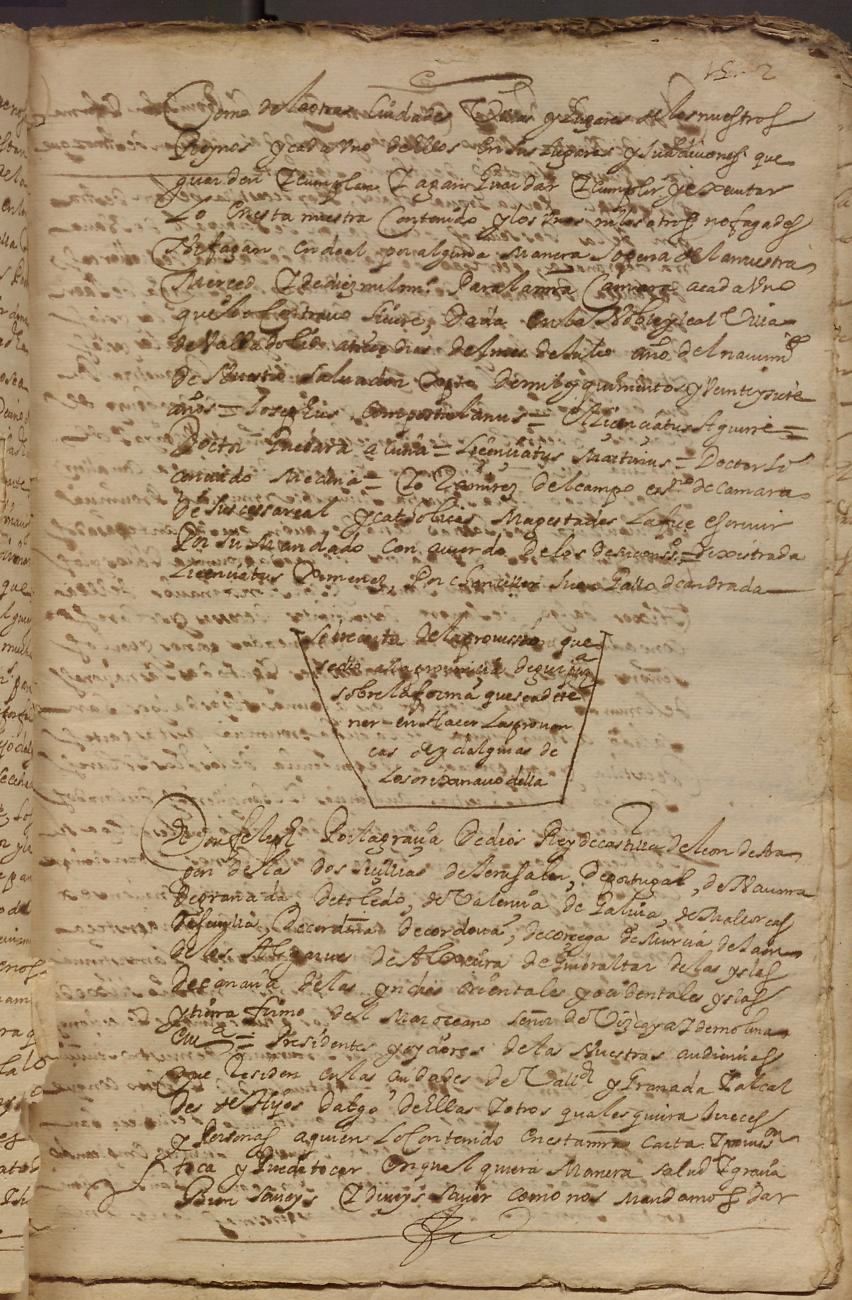 Como de las otras Ciudades Villas y Lugares de los nuestros
Reynos y cada Uno de ellos en sus Lugares y Jurisdiciones que
guarden E cumplan E agan Guardar E cumplir y executar
Lo En esta nuestra Contenido y los Unos ni los otros no fagades
Ni fagan ende al por alguna Manera So pena de la nuestra
Merced E de diez mil mrs Para la nra Camara a cada Uno
que lo Contrario hiciere, Dada en la Noble Villa
de Valladolid a dias del mes de Julio año del nacimio
de Nuestro Salvador de mil y quinientos y Veinte y siete
años = Josephus Compostelanus = Licenciatus Aguirre =
Doctor Guebara acuña = Licenciatus Martinus = Doctor El
Medina = Yo Ramirez del campo esno de Camara
de sus cesarea y catholicas Magestades La fice escrivir
Por su Mandado con acuerdo de los de su consejo = Rexistrada
Licenciatus Ximenez Por chanciller Juan Gallo de andrada
de la provission que
se dio a la provincia de guipuz
sobre la forma que se a de te
ner en Hacer Las provan
cas de ydalguias de
Los originarios della
Don felipe Por la gracia De dios Rey de castilla de leon de Ara
gon de las dos sicilias de Jerusalen, De portugal, de Navarra
De granada De toledo, de Valencia de Galicia, de Mallorcas
De sevilla, De cerdeña De cordova, de corcega de Murcia de Jaen
de los Algarves de Algecira de Gibraltar de las yslas
de canaria de las yndias orientales y ocidentales yslas
y tierra firme del Mar oceano señor de Vizcaya E de molina
Presidentes y oydores de las Nuestras audiencias
que Residen en las ciudades de Vallid y Granada E alcal
des de Hijos dalgo de Ellas E otros quales quiera Jueces
y Personas a quien Lo Contenido En esta nra Carta E
toca y Puede tocar en qual quiera Manera salud E gracia
Bien saveys E deveys saver como nos Mandamos dar